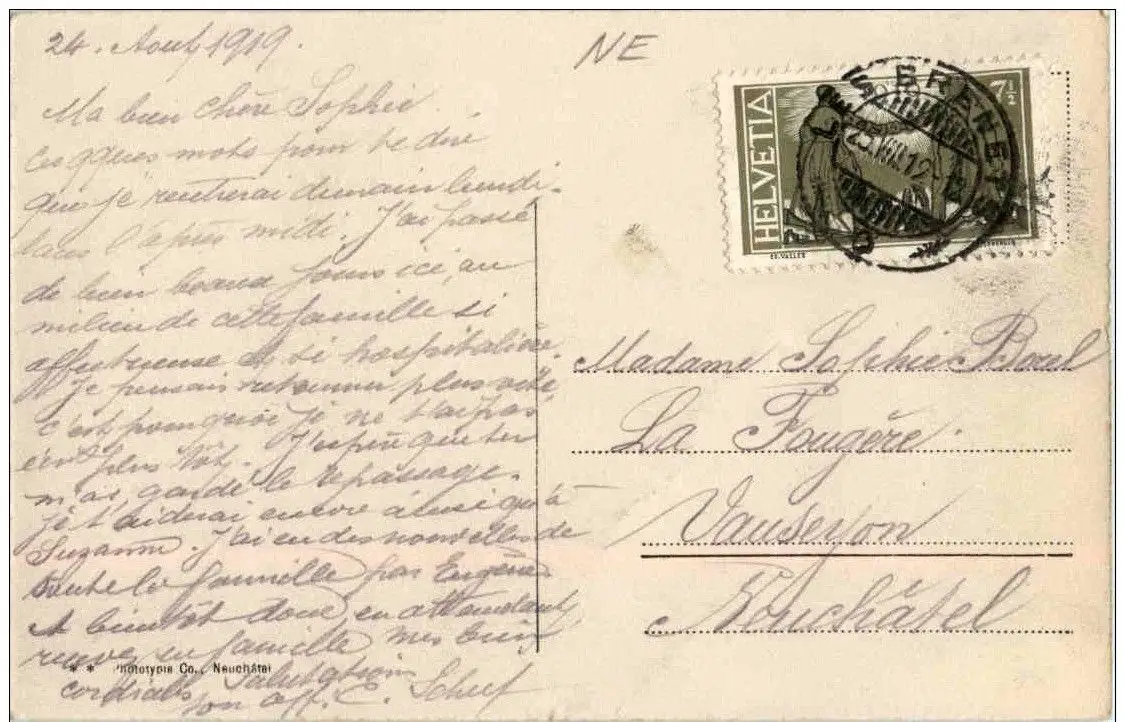 24. Août 1919.
NE
Ma bien chère Sophie.
Ces qques mots pour te dire
que je rentrerai demain lundi
dans l'après midi. J'ai passé
de bien beaux jours ici, au
milieu de cette famille si
affectueuse et si hospitalière.
Je pensais retourner plus vite
c'est pourquoi je ne t'ai pas
écrit plus tôt. J'espère que tu
m'as gardé le repassage.
Je t'aiderai encore ainsi qu'à
Suzanne. J'ai eu des nouvelles de
toute la famille par Eugène
A bientôt donc en attendant
en famille mes bien
cordiales salutations
ton aff. C.
* * Phototypie Co., Neuchâtel
HELVETIA
7½
BRENETS
25.VIII.19
Madame Sophie Borel
La Fougère.
Vauseyon
Neuchâtel